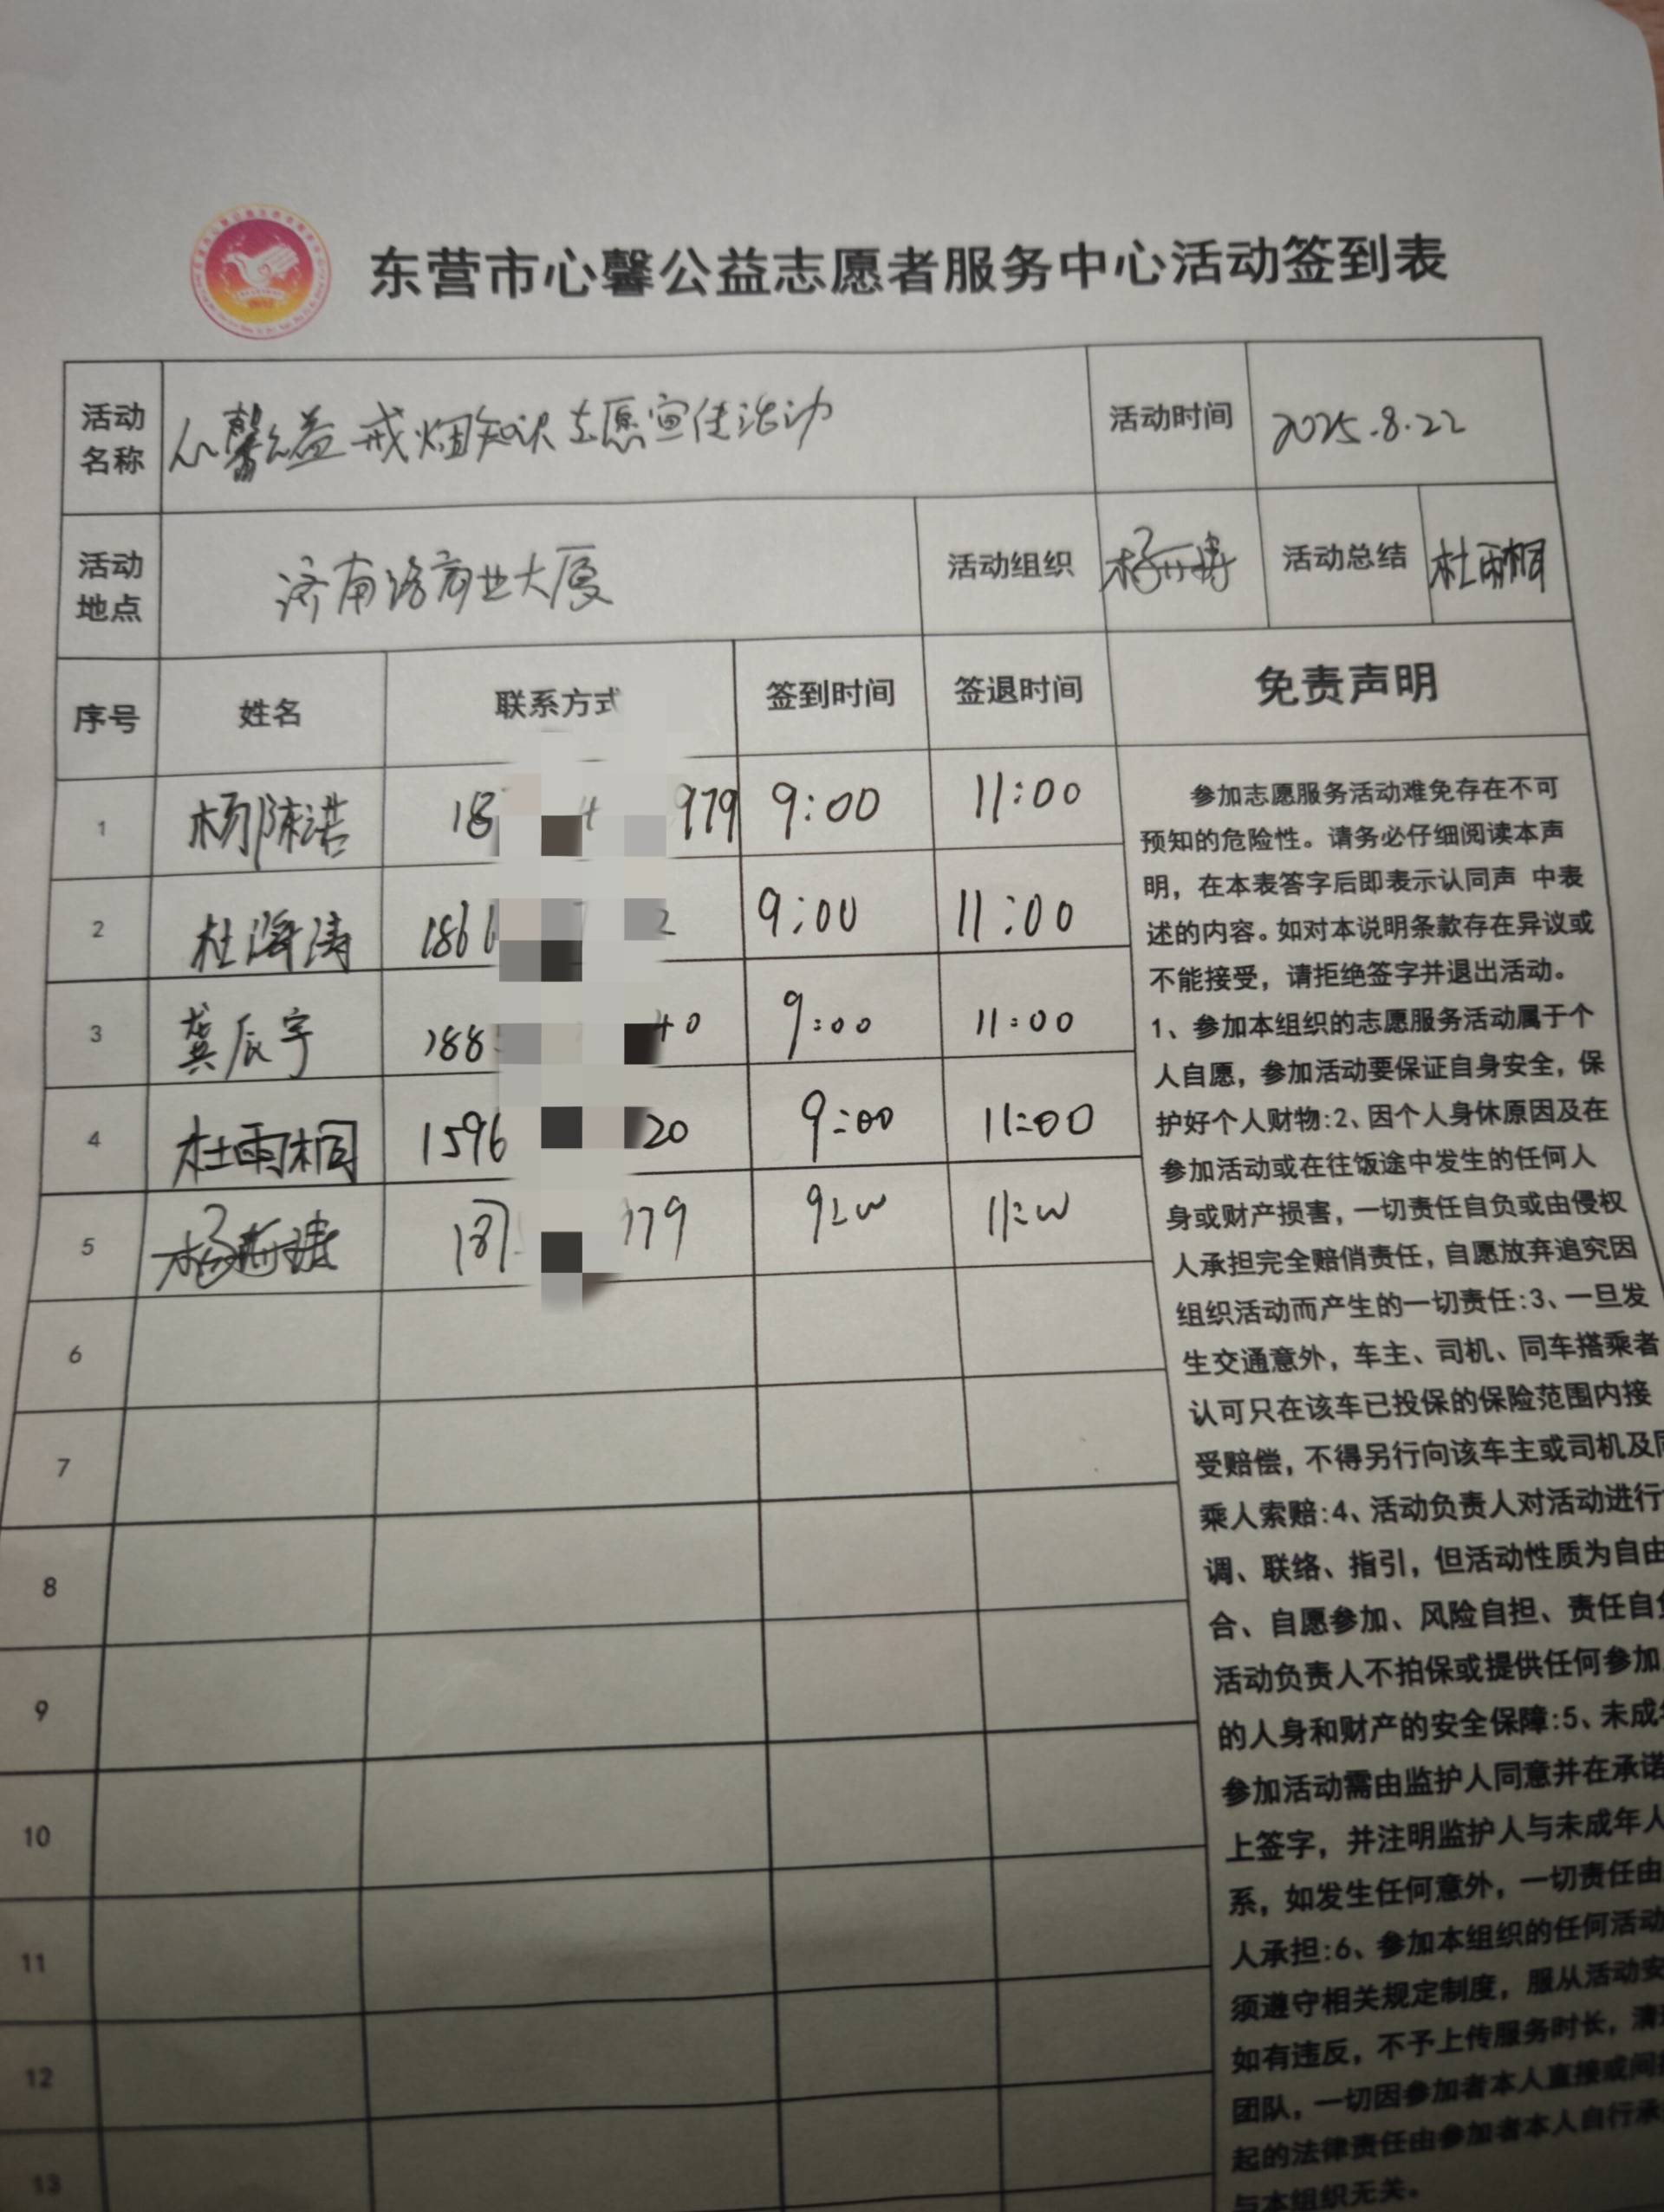 东营市心馨公益志愿者服务中心活动签到表
活动名称 心馨公益戒烟知识志愿宣传活动 活动时间 2025.8.22
活动地点 济南路商业大厦 活动组织 活动总结 杜雨桐
序号 姓名 联系方式 签到时间 签退时间 免责声明
1 杨陈诺 18 4 979 9:00 11:00
2 杜海涛 186 2 9:00 11:00
3 龚辰宇 188 40 9:00 11:00
4 杜雨桐 1596 20 9:00 11:00
5 187 179 9:00 11:00
6
7
8
9
10
11
12
13
参加志愿服务活动难免存在不可
预知的危险性。请务必仔细阅读本声
明，在本表答字后即表示认同声 中表
述的内容。如对本说明条款存在异议或
不能接受，请拒绝签字并退出活动。
1、参加本组织的志愿服务活动属于个
人自愿，参加活动要保证自身安全，保
护好个人财物:2、因个人身休原因及在
参加活动或在往饭途中发生的任何人
身或财产损害，一切责任自负或由侵权
人承担完全赔俏责任，自愿放弃追究因
组织活动而产生的一切责任:3、一旦发
生交通意外，车主、司机、同车搭乘者
认可只在该车已投保的保险范围内接
受赔偿，不得另行向该车主或司机及同
乘人索赔:4、活动负责人对活动进行
调、联络、指引，但活动性质为自由
合、自愿参加、风险自担、责任自负
活动负责人不拍保或提供任何参加
的人身和财产的安全保障:5、未成年
参加活动需由监护人同意并在承诺
上签字，并注明监护人与未成年人
系，如发生任何意外，一切责任由
人承担:6、参加本组织的任何活动
须遵守相关规定制度，服从活动安
如有违反，不予上传服务时长，清
团队，一切因参加者本人直接或间接
起的法律责任由参加者本人自行承
与本组织无关。